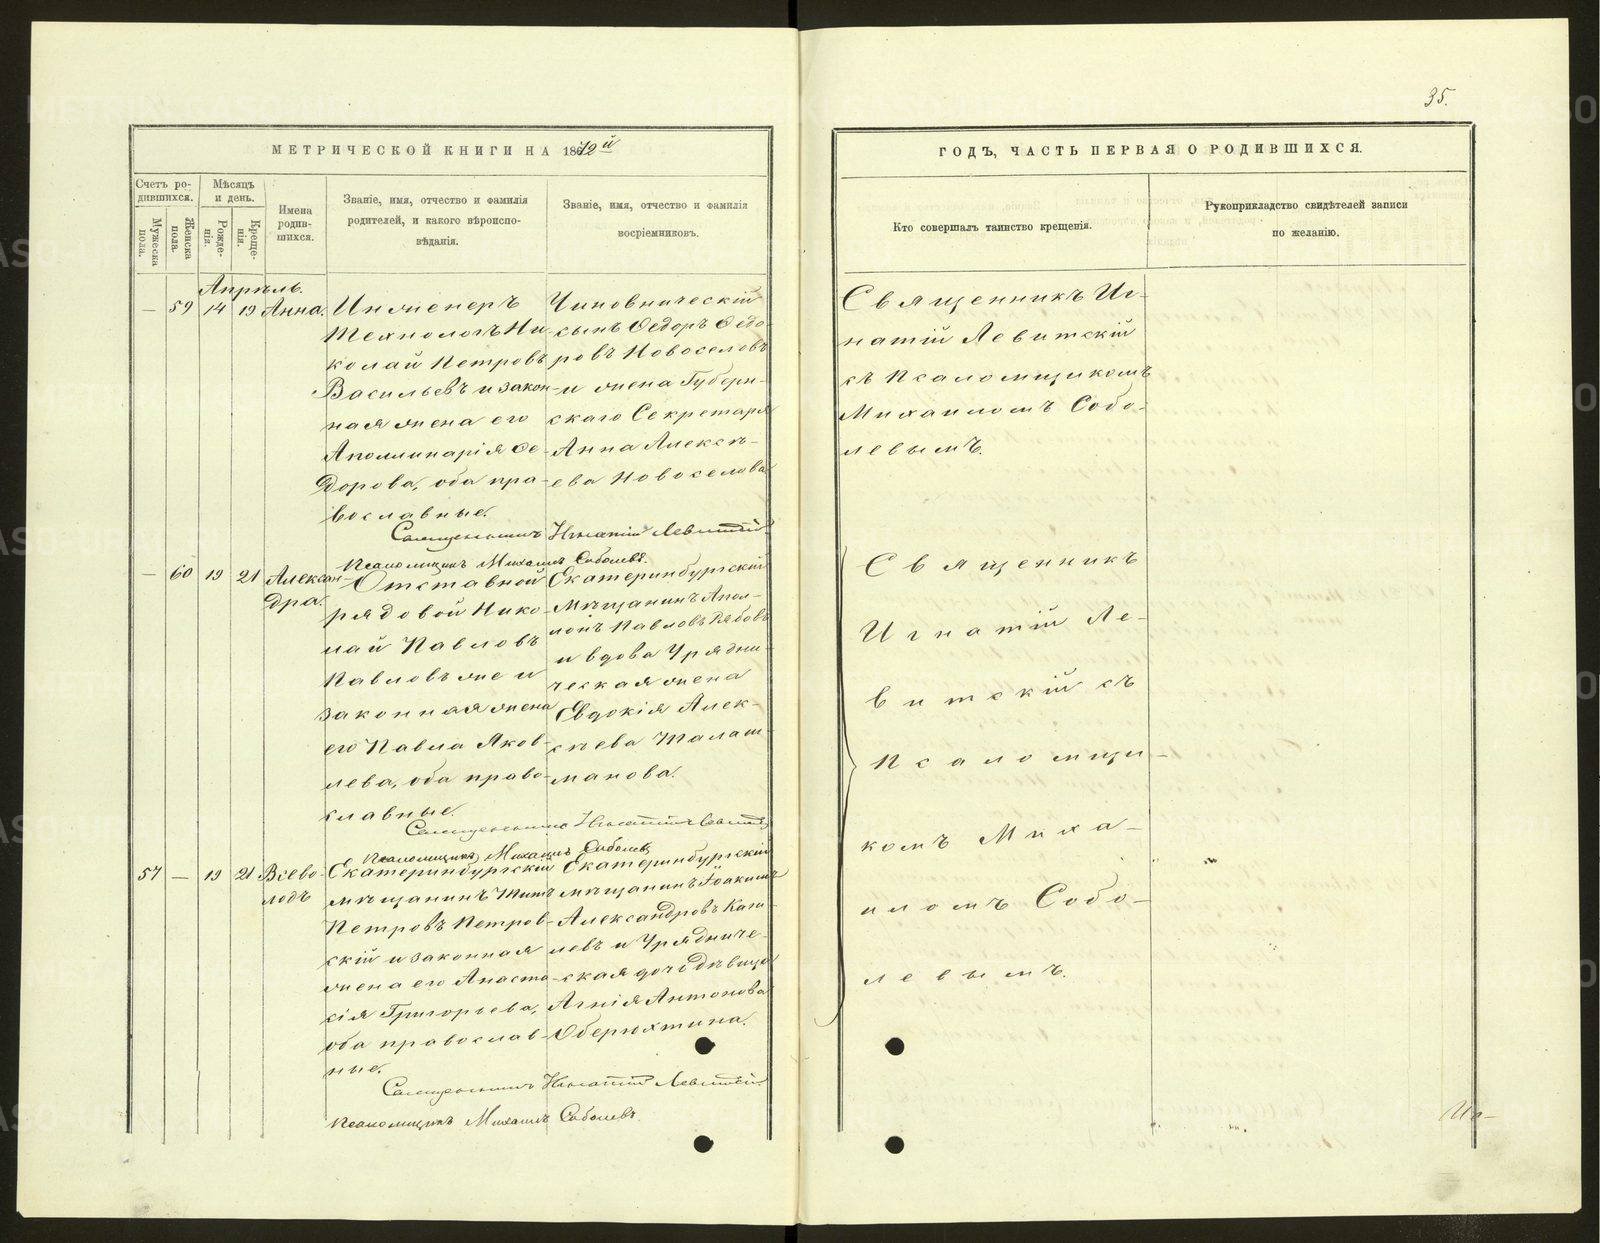 35.
МЕТРИЧЕСКОЙ КНИГИ НА 1872й
Счетъ ро-
дившихся.
Мѣсяцъ
и день.
Мужеска
пола.
Женска
пола.
Рожде-
нія.
Креще-
нія.
Имена
родив-
шихся.
Званіе, имя, отчество и фамилія
родителей, и какого вѣроиспо-
вѣданія.
Званіе, имя, отчество и фамилія
воспріемниковъ.
Апрѣль.
— 59 14 19 Анна.
Инженеръ
Технологъ Ни-
колай Петровъ
Васильевъ и закон-
ная жена его
Аполлинарія Ѳе-
дорова, оба пра-
вославные.
Чиновническій
сынъ Ѳедоръ Ѳедо-
ровъ Новоселовъ
и жена Губерн-
скаго Секретаря
Анна Алексѣ-
ева Новоселова
Священникъ Игнатій Левитскій
Псаломщикъ Михаилъ Соболевъ.
— 60 19 21 Алексан-
дра.
Отставной
рядовой Нико-
лай Павловъ
Павловъ же и
законная жена
его Павла Яков-
лева, оба право-
славные.
Екатеринбургскій
мѣщанинъ Апол-
лонъ Павловъ Рябовъ
и вдова Урядни-
ческая жена
Евдокія Алек-
сѣева Талаш-
манова.
Священникъ Игнатій Левитскій
Псаломщикъ Михаилъ Соболевъ
57 — 19 21 Всево-
лодъ
Екатеринбургскій
мѣщанинъ Титъ
Петровъ Петров-
скій и законная
жена его Анаста-
сія Григорьева,
оба православ-
ные.
Екатеринбургскій
мѣщанинъ Іоакимъ
Александровъ Каш-
левъ и Урядниче-
ская дочь дѣвица
Агнія Антонова
Оберюхтина.
Священникъ Игнатій Левитскій
Псаломщикъ Михаилъ Соболевъ.
ГОДЪ, ЧАСТЬ ПЕРВАЯ О РОДИВШИХСЯ.
Кто совершалъ таинство крещенія.
Рукоприкладство свидѣтелей записи
по желанію.
Священникъ Иг-
натій Левитскій
съ Псаломщикомъ
Михаиломъ Собо-
левымъ.
Священникъ
Игнатій Ле-
витскій съ
Псаломщи-
комъ Миха-
иломъ Собо-
левымъ.